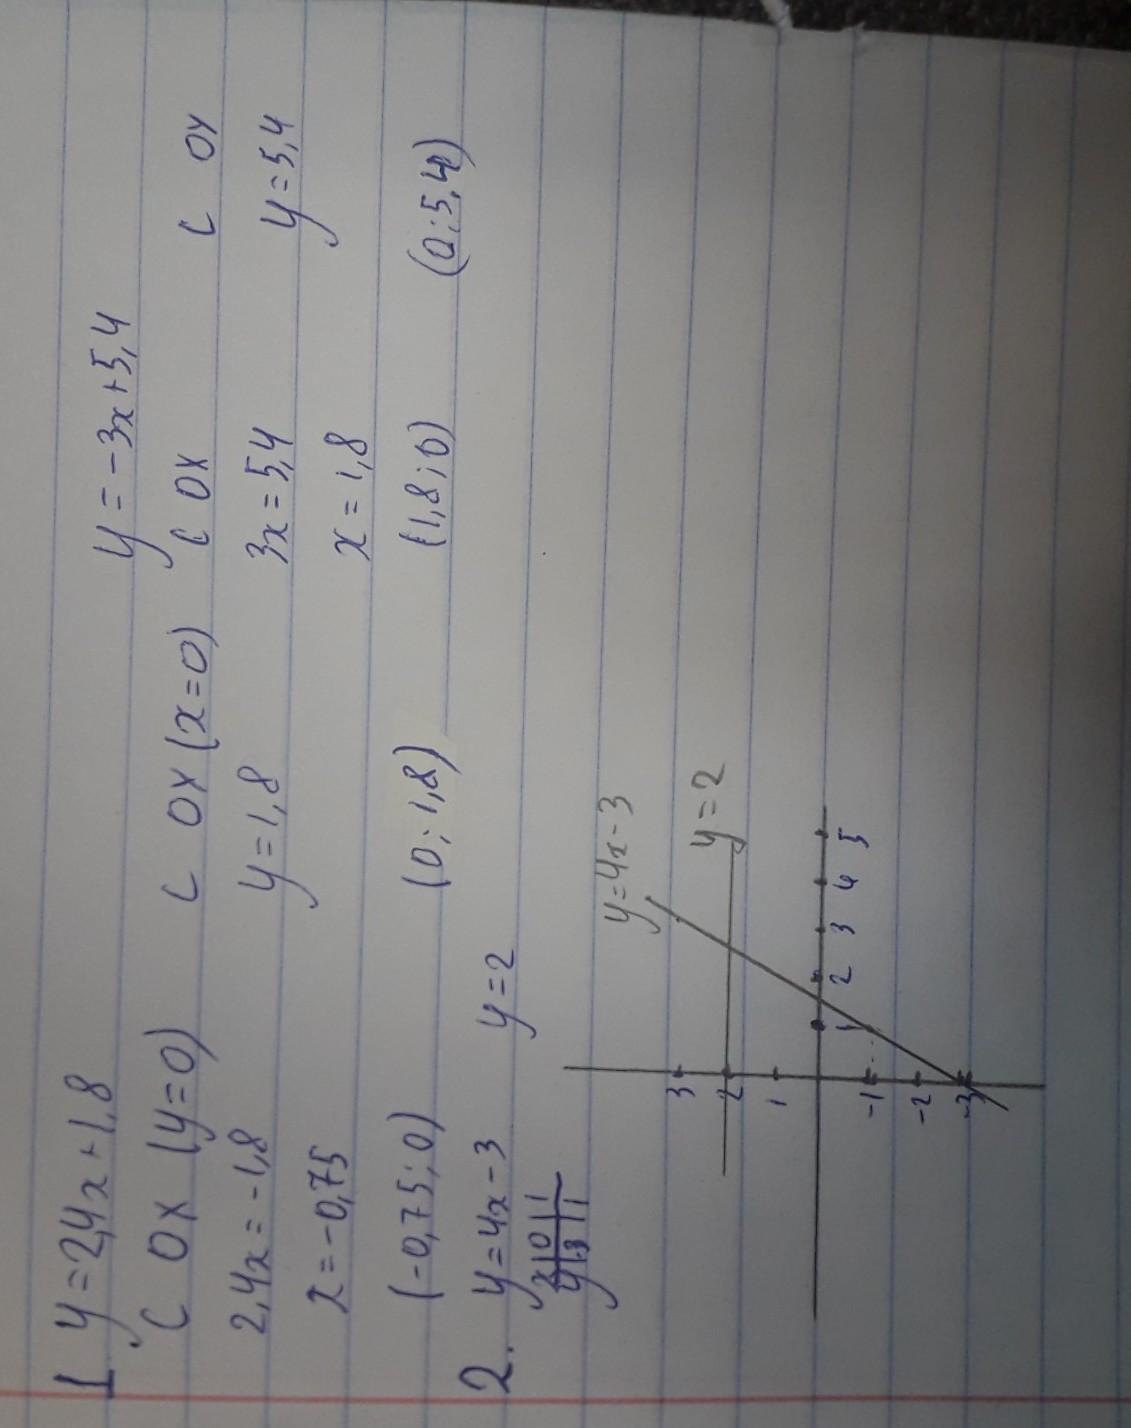 1. y = 2,4x + 1,8 y = -3x + 5,4
С ОХ (y=0) С ОХ (x=0) С ОХ С ОУ
2,4x = -1,8 y = 1,8 3x = 5,4 y = 5,4
x = -0,75 x = 1,8
(-0,75; 0) (0; 1,8) (1,8; 0) (0; 5,4)
2. y = 4x - 3 y = 2
x | 0 | 1
y | -3 | 1
y = 4x - 3
3
y = 2
2
1
1 2 3 4 5
-1
-2
-3